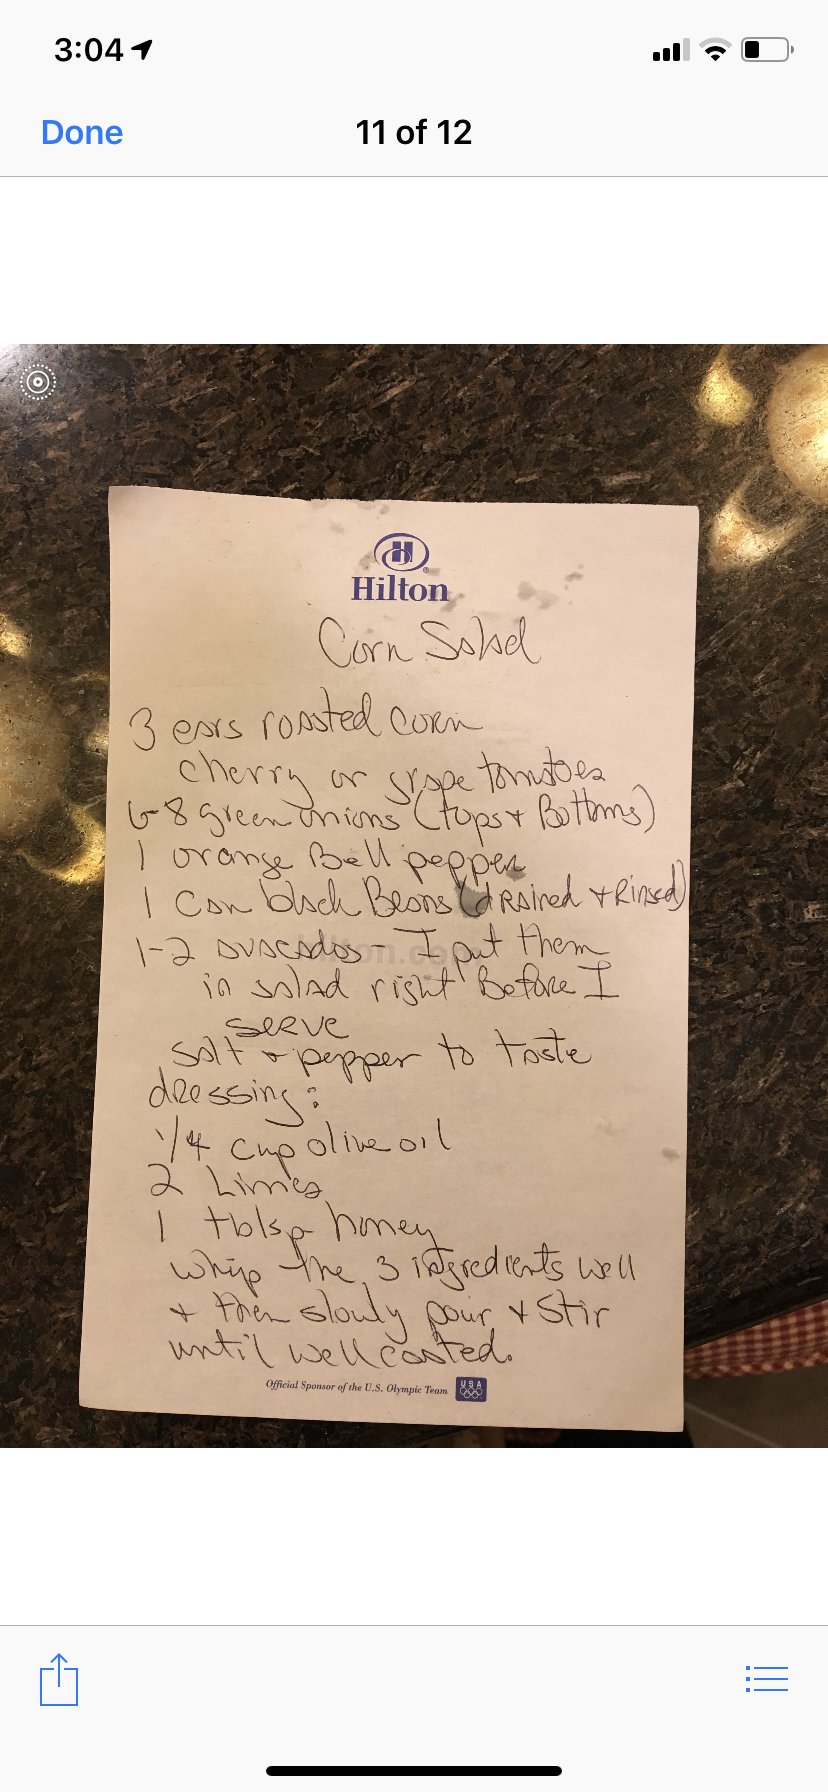 3:04
Done
11 of 12
Hilton
Corn Salad
3 ears roasted corn
cherry or grape tomatoes
6-8 green onions (tops + Bottoms)
1 orange Bell pepper
1 Can black Beans (drained + Rinsed)
1-2 avacados - I put them
in salad right Before I
serve
salt + pepper to taste
dressing:
1/4 cup olive oil
2 Limes
1 tblsp honey
whip the 3 ingredients well
+ then slowly pour + stir
until well coated.
Official Sponsor of the U.S. Olympic Team USA